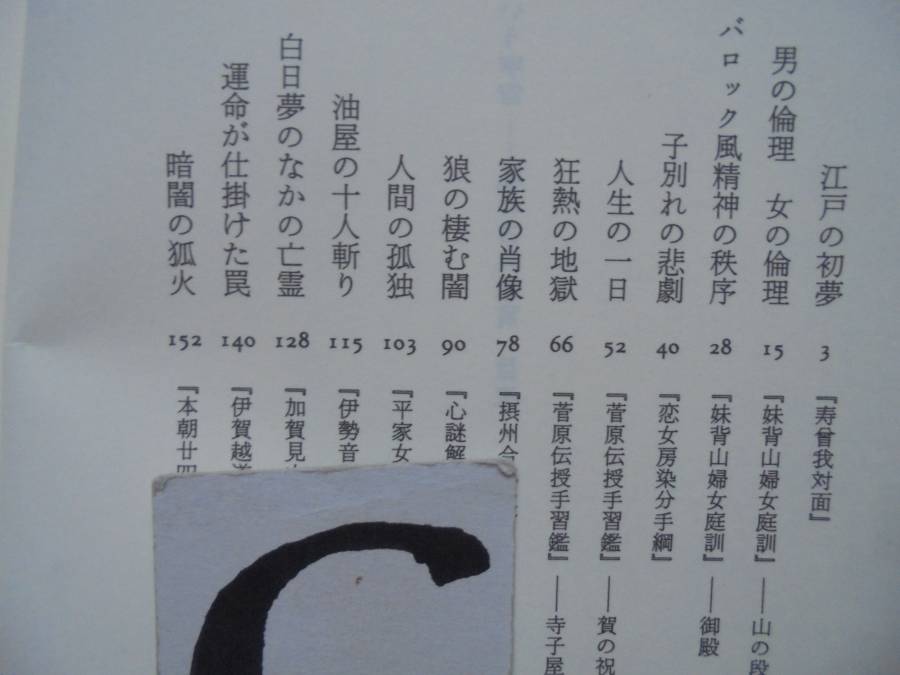 江戸の初夢 3 『寿曾我対面』
男の倫理 女の倫理 15 『妹背山婦女庭訓』――山の段
バロック風精神の秩序 28 『妹背山婦女庭訓』――御殿
子別れの悲劇 40 『恋女房染分手綱』
人生の一日 52 『菅原伝授手習鑑』――賀の祝
狂熱の地獄 66 『菅原伝授手習鑑』――寺子屋
家族の肖像 78 『摂州合
狼の棲む闇 90 『心謎解
人間の孤独 103 『平家女
油屋の十人斬り 115 『伊勢音
白日夢のなかの亡霊 128 『加賀見
運命が仕掛けた罠 140 『伊賀越
暗闇の狐火 152 『本朝廿四